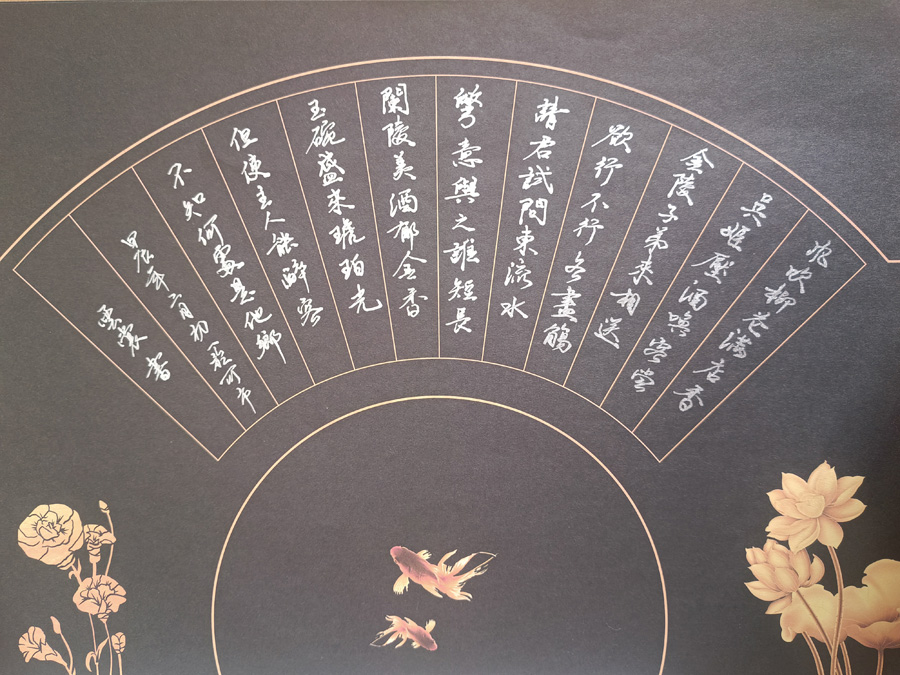 风吹柳花满店香
吴姬壓酒唤客尝
金陵子弟来相送
欲行不行各盡觞
請君試問東流水
别意與之誰短長
蘭陵美酒郁金香
玉碗盛来琥珀光
但使主人能醉客
不知何處是他鄉
甲辰年二月初
雲裳書